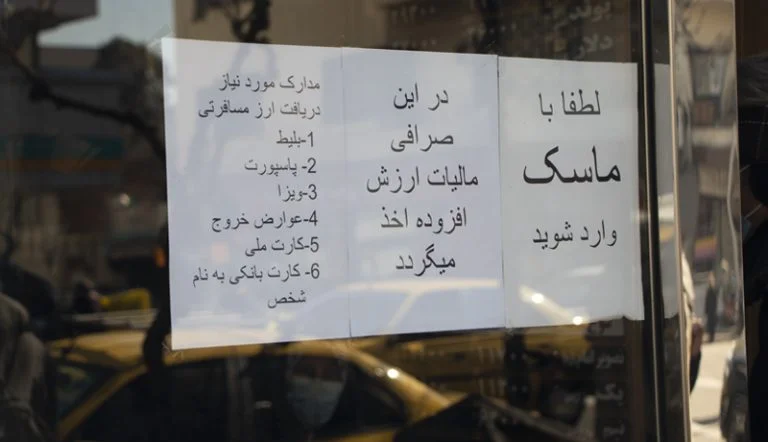 لطفا با
ماسک
وارد شوید
در این
صرافی
مالیات ارزش
افزوده اخذ
میگردد
مدارک مورد نیاز
دریافت ارز مسافرتی
1-بلیط
2- پاسپورت
3-ویزا
4-عوارض خروج
5-کارت ملی
6- کارت بانکی به نام
شخص
پوند
دلار